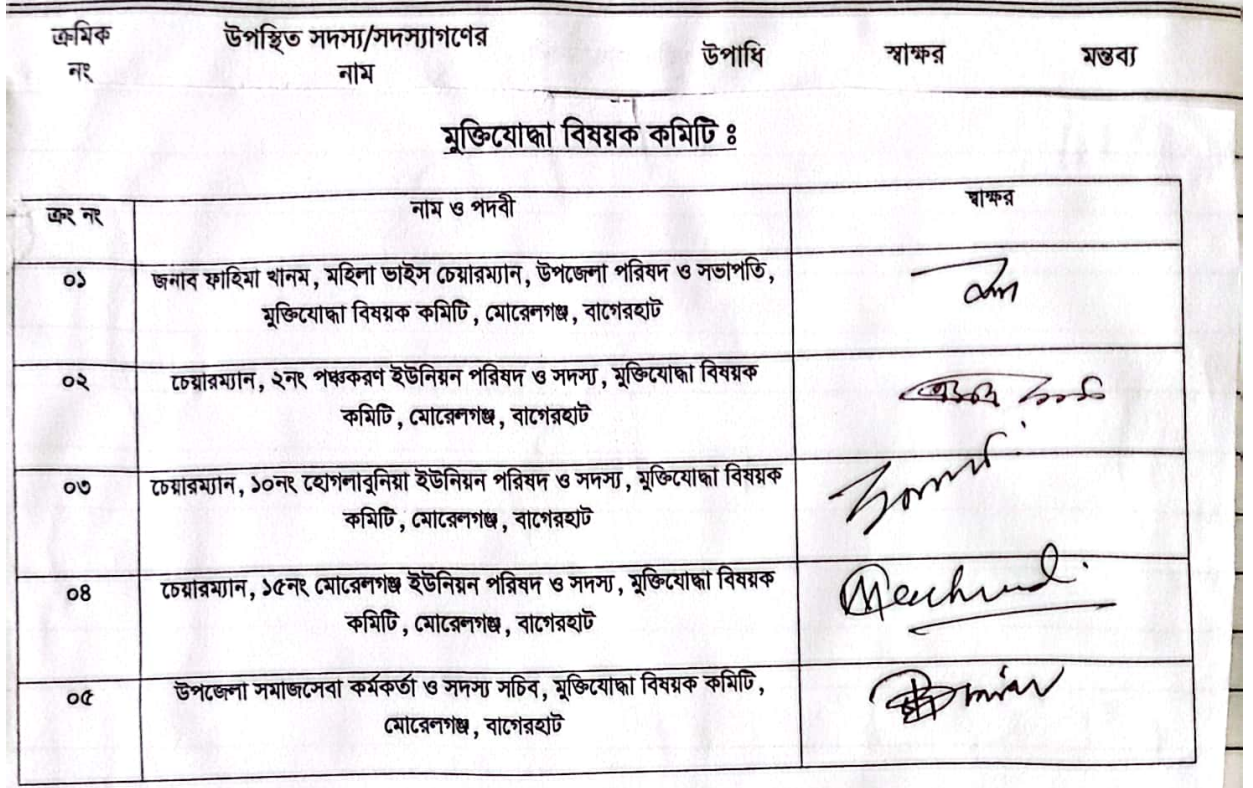 ক্রমিক নং
উপস্থিত সদস্য/সদস্যাগণের নাম
উপাধি
স্বাক্ষর
মন্তব্য
মুক্তিযোদ্ধা বিষয়ক কমিটি ঃ
ক্রং নং
নাম ও পদবী
স্বাক্ষর
০১
জনাব ফাহিমা খানম, মহিলা ভাইস চেয়ারম্যান, উপজেলা পরিষদ ও সভাপতি,
মুক্তিযোদ্ধা বিষয়ক কমিটি, মোরেলগঞ্জ, বাগেরহাট
০২
চেয়ারম্যান, ২নং পঞ্চকরণ ইউনিয়ন পরিষদ ও সদস্য, মুক্তিযোদ্ধা বিষয়ক
কমিটি, মোরেলগঞ্জ, বাগেরহাট
০৩
চেয়ারম্যান, ১০নং হোগলাবুনিয়া ইউনিয়ন পরিষদ ও সদস্য, মুক্তিযোদ্ধা বিষয়ক
কমিটি, মোরেলগঞ্জ, বাগেরহাট
০৪
চেয়ারম্যান, ১৫নং মোরেলগঞ্জ ইউনিয়ন পরিষদ ও সদস্য, মুক্তিযোদ্ধা বিষয়ক
কমিটি, মোরেলগঞ্জ, বাগেরহাট
০৫
উপজেলা সমাজসেবা কর্মকর্তা ও সদস্য সচিব, মুক্তিযোদ্ধা বিষয়ক কমিটি,
মোরেলগঞ্জ, বাগেরহাট